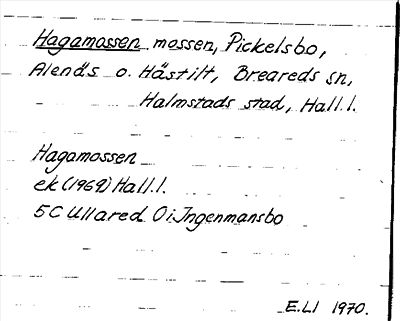 Hagamossen mossen, Pickelsbo,
Alenäs o. Hästilt, Breareds sn,
Halmstads stad, Hall.l.
Hagamossen
ek (1969) Hall.l.
5C Ullared 0 i Ingenmansbo
E.LI 1970.